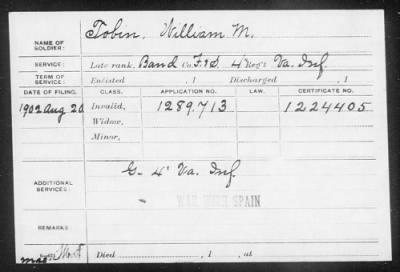 Tobin, William M.
NAME OF SOLDIER:
SERVICE: Late rank, Band Co. F. & S. 4 Reg't Va. Inf.
TERM OF SERVICE: Enlisted , 1 Discharged , 1
DATE OF FILING. CLASS. APPLICATION NO. LAW. CERTIFICATE NO.
1902 Aug 20 Invalid, 1289.713 1224405
Widow,
Minor,
G. 4" Va. Inf.
ADDITIONAL SERVICES:
WAR WITH SPAIN
REMARKS:
Died , 1 , at